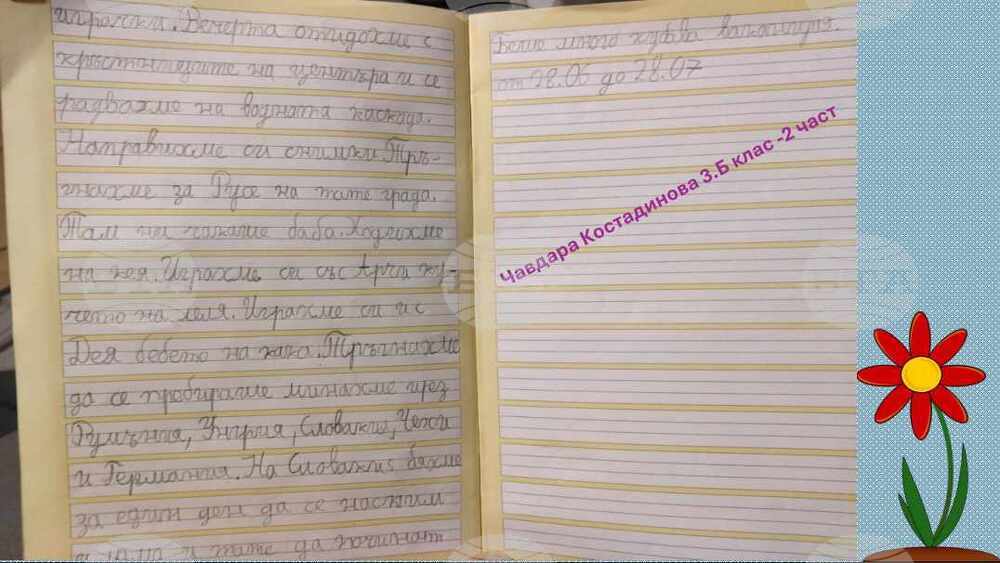 играчки. Вечерта отидохме с
кръстниците на центъра и се
радвахме на водната каскада.
Направихме си снимки. Тръ-
гнахме за Русе на тате града.
Там ни чакаше баба. Ходихме
на кея. Играхме си със Арчи ку-
чето на леля. Играхме си и с
Дея бебето на кака. Тръгнахме
да се прибираме минахме през
Румъния, Унгрия, Словакия, Чехси
и Германия. На Словакия бяхме
за един ден да се наспим
и мама и тате да починат
Беше много хубва ваканция.
от 28.06 до 28.07
Чавдара Костадинова 3.Б клас -2 част